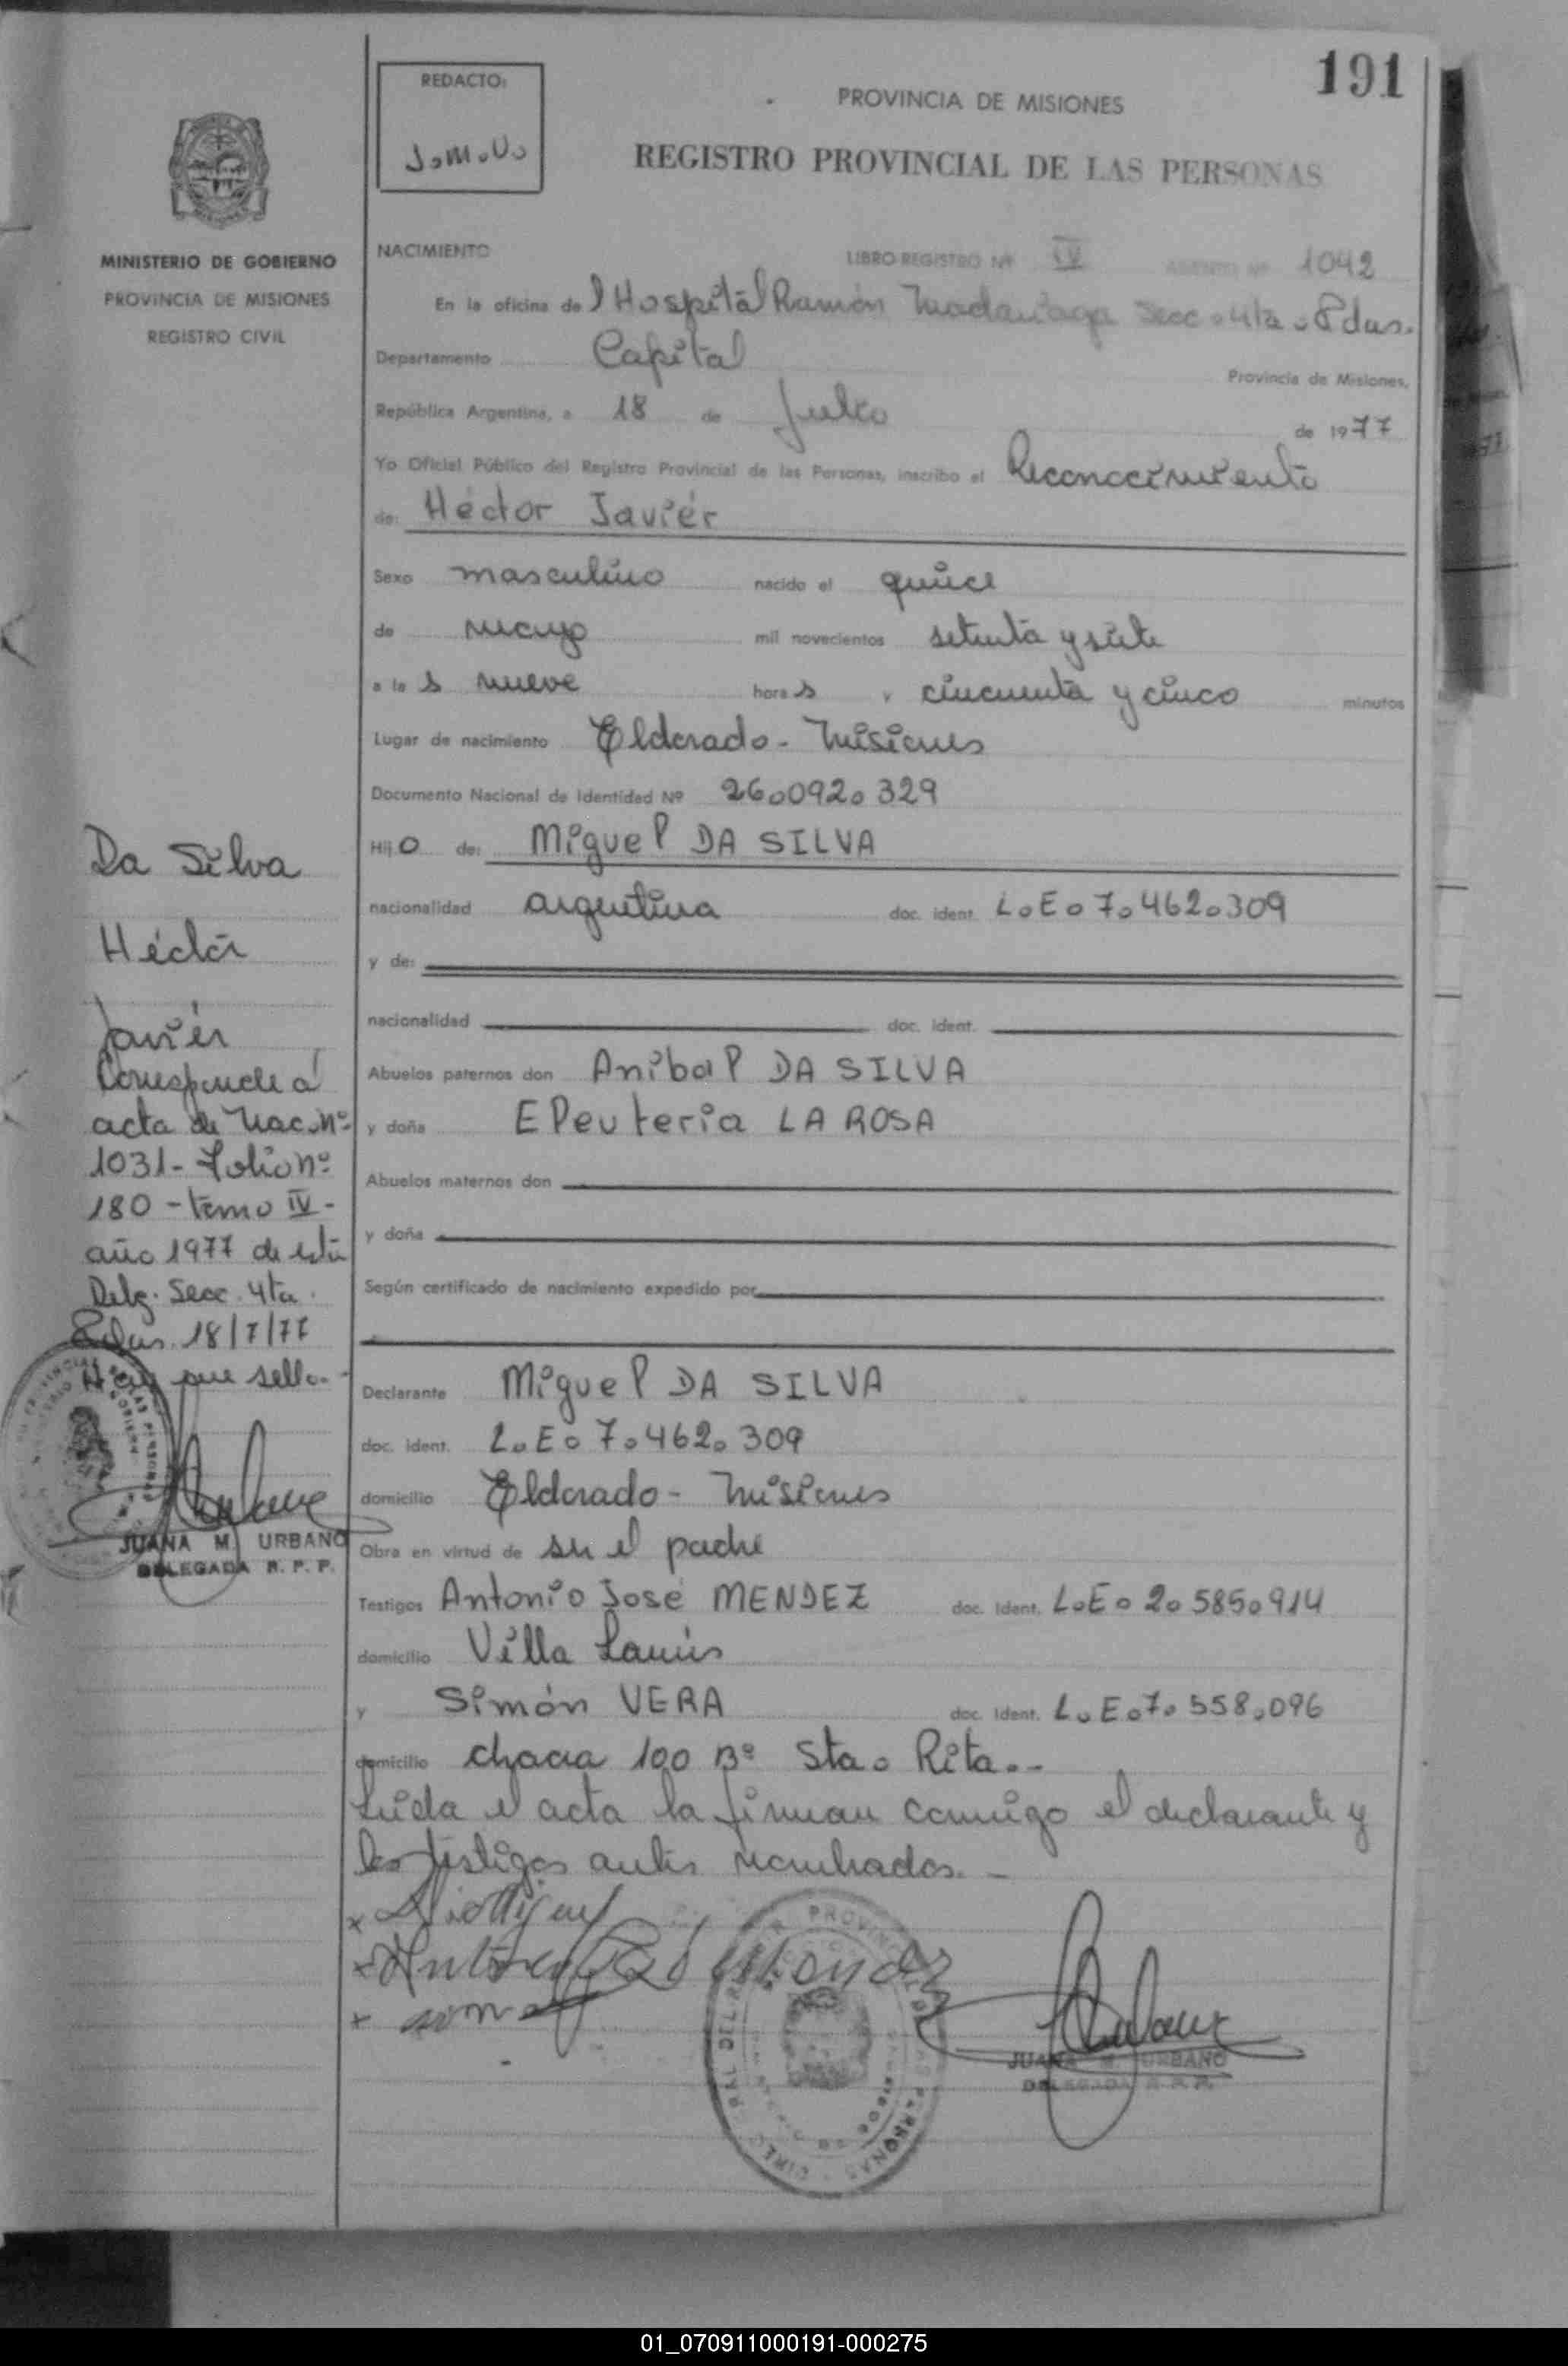 191
REDACTO:
J.M.U.
PROVINCIA DE MISIONES
REGISTRO PROVINCIAL DE LAS PERSONAS
MINISTERIO DE GOBIERNO
PROVINCIA DE MISIONES
REGISTRO CIVIL
NACIMIENTO LIBRO REGISTRO Nº IV ASIENTO Nº 1042
En la oficina del Hospital Ramón Madariaga Secc. 4ta. Pdas.
Departamento Capital Provincia de Misiones,
República Argentina, a 18 de Julio de 1977
Yo Oficial Público del Registro Provincial de las Personas, inscribo el Reconocimiento
de: Héctor Javiér
Sexo masculino nacido el quince
de mayo mil novecientos setenta y siete
a las nueve horas y cincuenta y cinco minutos
Lugar de nacimiento Eldorado - Misiones
Documento Nacional de Identidad Nº 26.092.329
Hijo de: Miguel DA SILVA
nacionalidad argentina doc. ident. L.E. 7.462.309
y de:
nacionalidad doc. ident.
Abuelos paternos don Anibal DA SILVA
y doña Eleuteria LA ROSA
Abuelos maternos don
y doña
Según certificado de nacimiento expedido por
Declarante Miguel DA SILVA
doc. ident. L.E. 7.462.309
domicilio Eldorado - Misiones
Obra en virtud de ser el padre
Testigos Antonio José MENDEZ doc. Ident. L.E. 2.585.914
domicilio Villa Lanús
y Simón VERA doc. Ident. L.E. 7.558.096
domicilio chacra 100 Bº Sta. Rita.-
Leída el acta la firman conmigo el declarante y
los testigos antes nombrados.-
JUANA M. URBANO
DELEGADA R. P. P.
Da Silva
Héctor
Javiér
Corresponde a
acta de Nac. Nº
1031 - Folio nº
180 - tomo IV -
año 1977 de esta
Deleg. Secc. 4ta.
Pdas. 18/7/77
Hay un sello.-
JUANA M. URBANO
DELEGADA R. P. P.
01_070911000191-000275